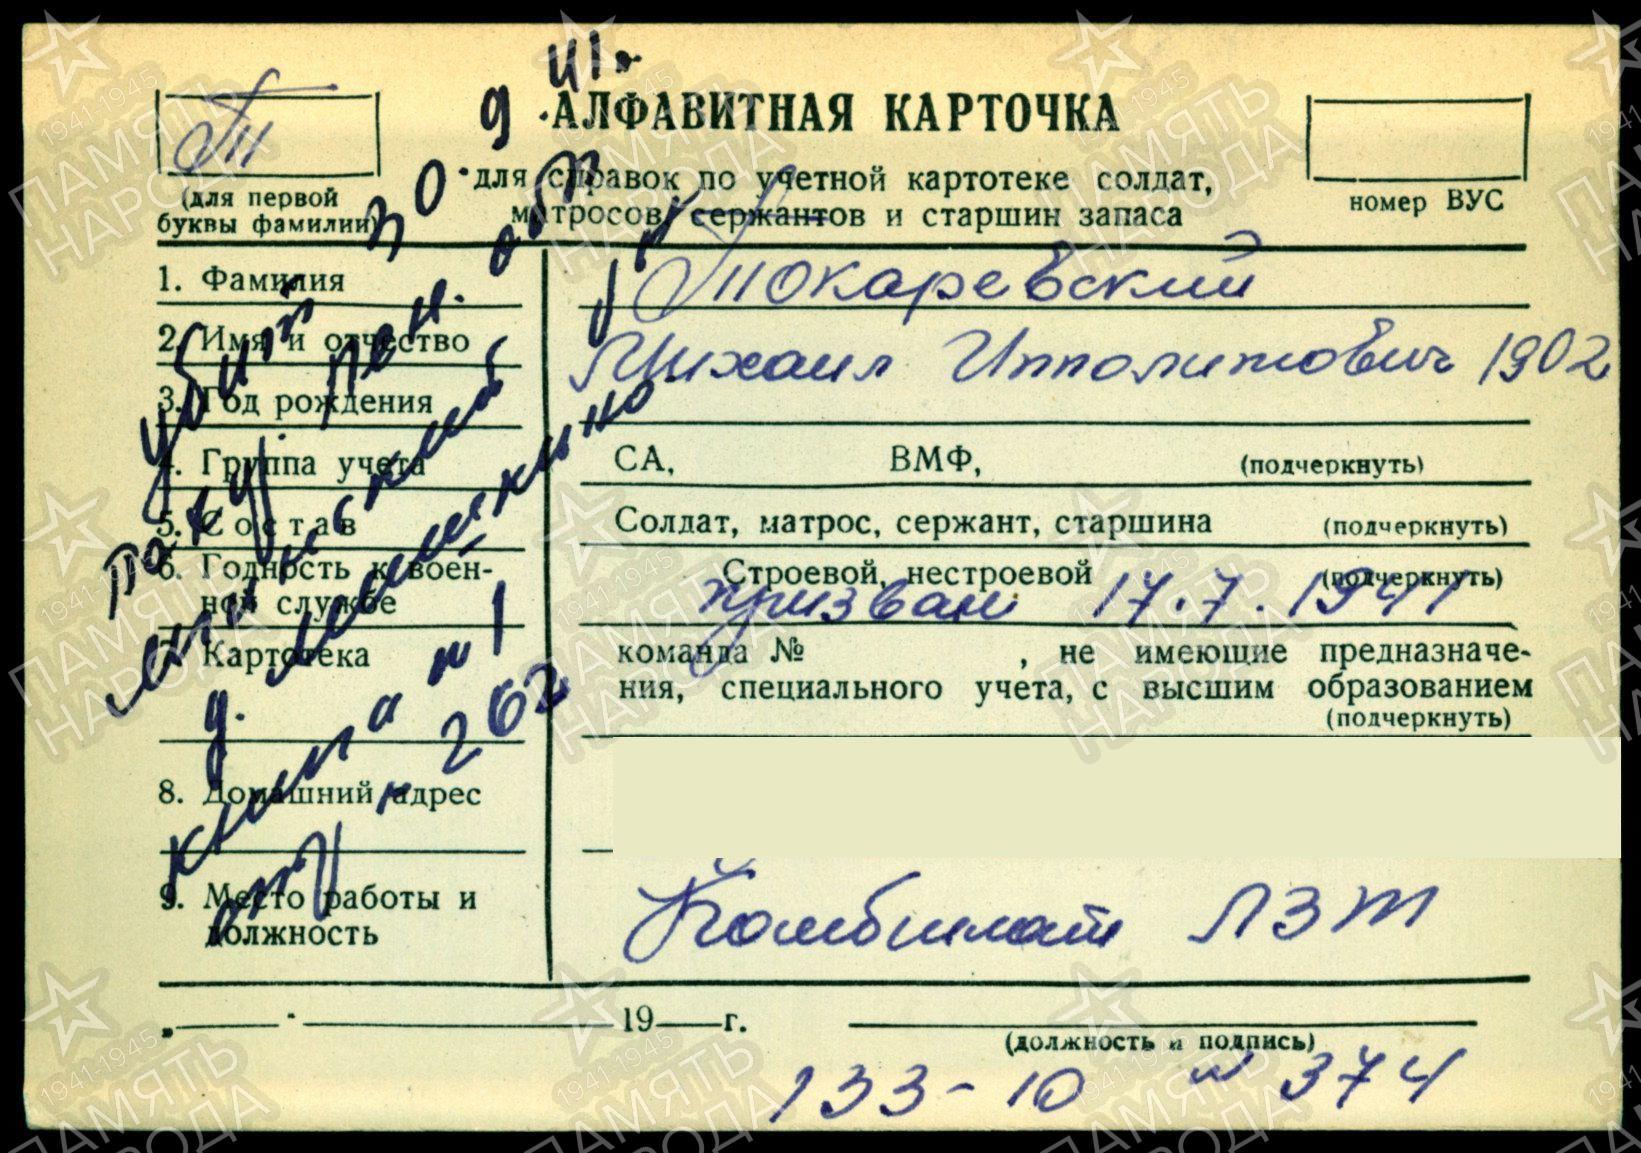 9 41г
АЛФАВИТНАЯ КАРТОЧКА
для справок по учетной картотеке солдат,
матросов, сержантов и старшин запаса
Т
(для первой
буквы фамилии)
номер ВУС
1. Фамилия
Токаревский
2. Имя и отчество
Михаил Ипполитович 1902
3. Год рождения
4. Группа учета
СА, ВМФ, (подчеркнуть)
5. Состав
Солдат, матрос, сержант, старшина (подчеркнуть)
6. Годность к воен-
ной службе
Строевой, нестроевой (подчеркнуть)
призван 17.7.1941
7. Картотека
команда № , не имеющие предназначе-
ния, специального учета, с высшим образованием
(подчеркнуть)
8. Домашний адрес
9. Место работы и
должность
Комбинат ЛЗТ
убит 30
книга № 1
262
„ " 19 г.
(должность и подпись)
133-10 № 374
1941-1945
ПАМЯТЬ
НАРОДА